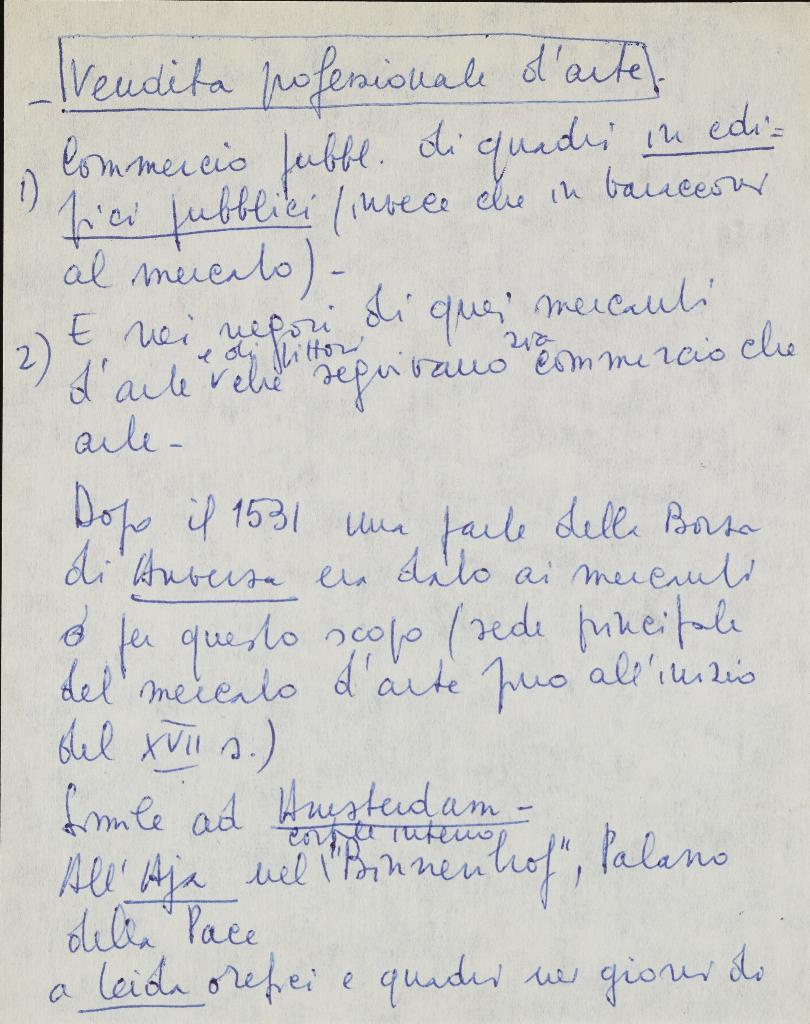 - Vendita pofessionale d'arte.
1) Commercio pubbl. di quadri in edi=
fici pubblici (invece che in banccom
al mercato) -
2) E nei negozi di quei mercanti
e di pittori
d'arte che seguivano sia commercio che
arte -
Dopo il 1531 una parte della Borsa
di Anversa era dato ai mercanti
per questo scopo (sede principale
del mercato d'arte fino all'inizio
del XVII s.)
Simile ad Amsterdam -
cortile interno
All'Aja nel "Binnenhof", Palazzo
della Pace
a Leida orefici e quadri nei giorni di